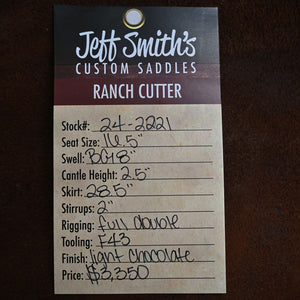 Jeff Smith's
CUSTOM SADDLES
RANCH CUTTER
Stock#: 24-2221
Seat Size: 16.5"
Swell: BG18"
Cantle Height: 2.5"
Skirt: 28.5"
Stirrups: 2"
Rigging: full double
Tooling: F43
Finish: light chocolate
Price: $3,350